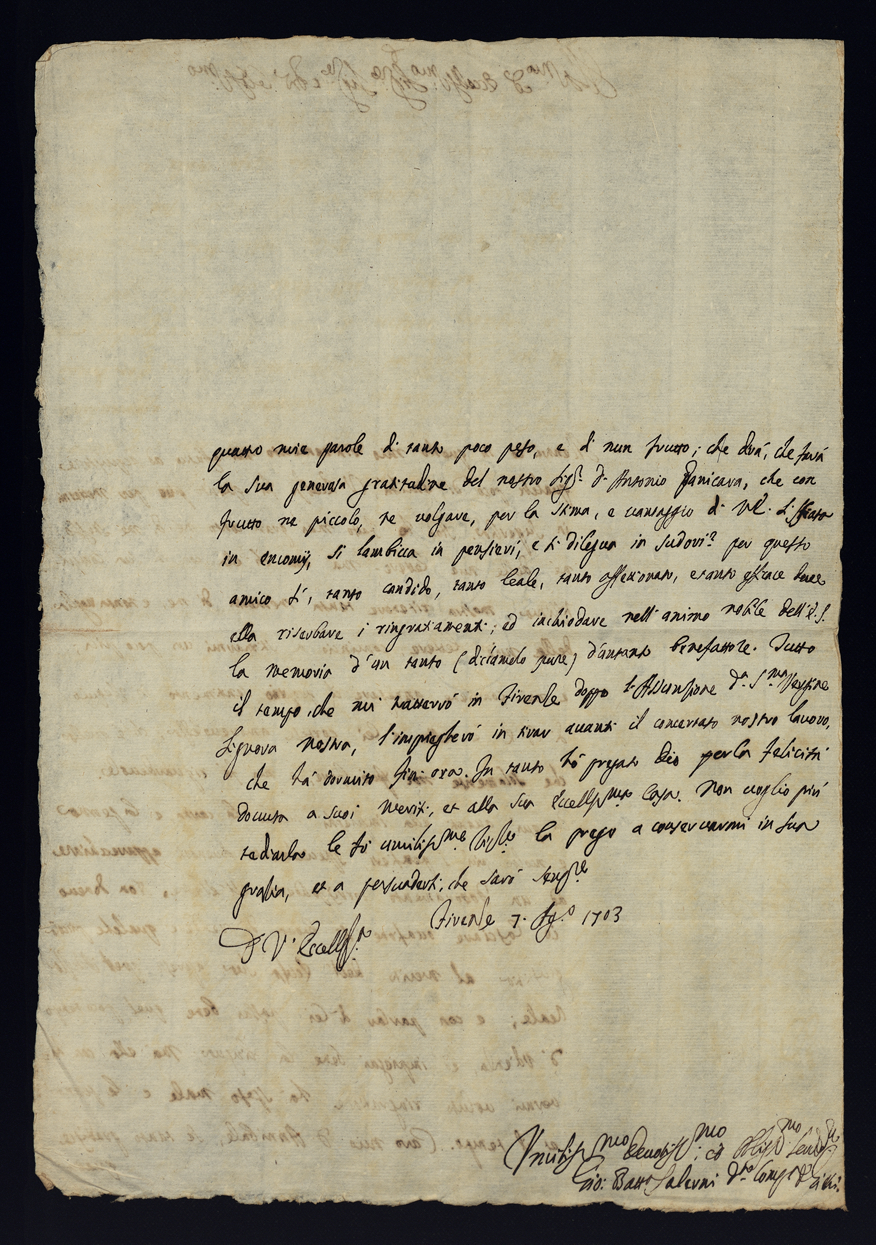 quattro mie parole di tanto poco peso, e di niun frutto; che dirà, che farà
la sua generosa gratitudine del nostro Sig.r D. Antonio Panicara, che con
frutto ne piccolo, ne volgare, per la stima, e vantaggio di V.E. si sfiata
in encomij, si lambicca in pensieri, e si dilegua in sudori? per questo
amico sì, tanto candido, tanto leale, tanto affezionato, e tanto efficace deve
ella riserbare i ringratiamenti; ed inchiodare nell'animo nobile dell'E.S.
la memoria d'un tanto (diciamolo pure) d'un tanto benefattore. Tutto
il tempo, che mi tratterrò in Firenze doppo l'Assunzione d.a S.ma Vergine
Signora nostra, l'impiegherò in tirar avanti il concertato nostro lavoro,
che hà dormito fin ora. In tanto hò pregato Dio per la felicità
dovuta a suoi meriti, et alla sua Eccell.ma Casa. Non voglio più
tediarla le fò umiliss.ma la prego a conservarmi in sua
grazia, et a persuadersi, che sarò sempre
Firenze 7. Ag.o 1703
D V. Eccell.a
Umiliss.mo Devotiss.mo ed Obligat.mo Servo
Gio: Batta Salerni d.a Comp.a di Giesù